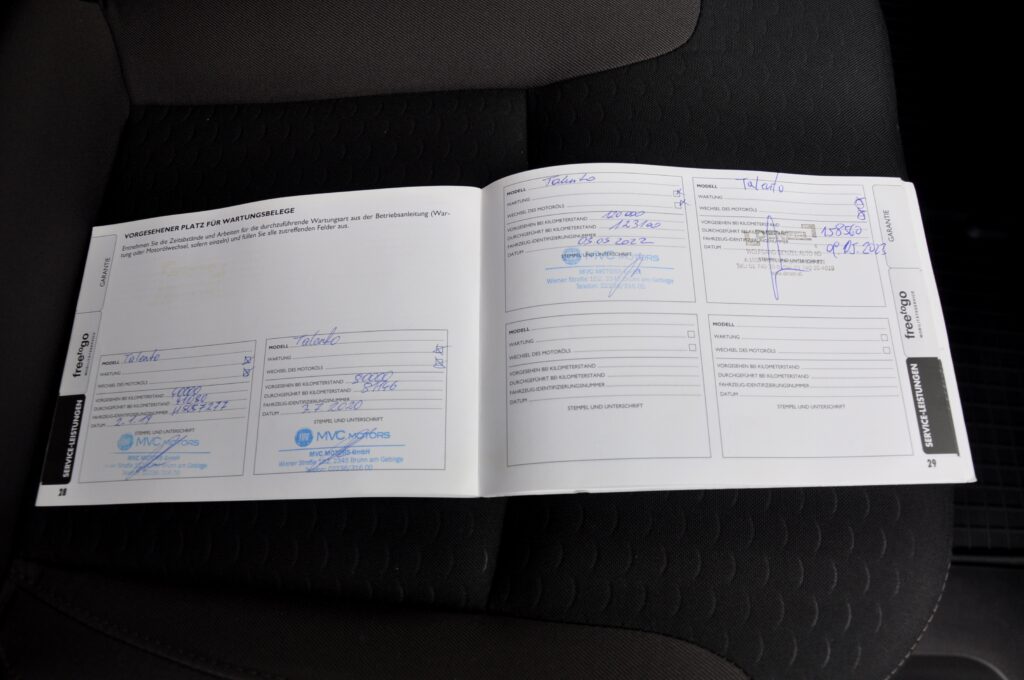 VORGESEHENER PLATZ FÜR WARTUNGSBELEGE
Entnehmen Sie die Zeitabstände und Arbeiten für die durchzuführende Wartungsart aus der Betriebsanleitung (War-
tung oder Motorölwechsel, sofern einzeln) und füllen Sie alle zutreffenden Felder aus.
GARANTIE
freetogo
SERVICE-LEISTUNGEN
28
MODELL Talento
WARTUNG
WECHSEL DES MOTORÖLS
VORGESEHEN BEI KILOMETERSTAND
DURCHGEFÜHRT BEI KILOMETERSTAND
FAHRZEUG-IDENTIFIZIERUNGSNUMMER
DATUM
STEMPEL UND UNTERSCHRIFT
MVC MOTORS
MVC MOTORS GmbH
MODELL Talento
WARTUNG
WECHSEL DES MOTORÖLS
VORGESEHEN BEI KILOMETERSTAND
DURCHGEFÜHRT BEI KILOMETERSTAND
FAHRZEUG-IDENTIFIZIERUNGSNUMMER
DATUM 3.7.2020
STEMPEL UND UNTERSCHRIFT
MVC MOTORS
MVC MOTORS GmbH
Wiener Straße 182, 2345 Brunn am Gebirge
Telefon: 02236/316 00
MODELL Talento
WARTUNG
WECHSEL DES MOTORÖLS
VORGESEHEN BEI KILOMETERSTAND 120000
DURCHGEFÜHRT BEI KILOMETERSTAND 123100
FAHRZEUG-IDENTIFIZIERUNGSNUMMER
DATUM 05.05.2022
STEMPEL UND UNTERSCHRIFT
MVC MOTORS
MODELL Talento
WARTUNG
WECHSEL DES MOTORÖLS
VORGESEHEN BEI KILOMETERSTAND
DURCHGEFÜHRT BEI KILOMETERSTAND 158560
FAHRZEUG-IDENTIFIZIERUNGSNUMMER
DATUM 09.05.2023
STEMPEL UND UNTERSCHRIFT
MODELL
WARTUNG
WECHSEL DES MOTORÖLS
VORGESEHEN BEI KILOMETERSTAND
DURCHGEFÜHRT BEI KILOMETERSTAND
FAHRZEUG-IDENTIFIZIERUNGSNUMMER
DATUM
STEMPEL UND UNTERSCHRIFT
MODELL
WARTUNG
WECHSEL DES MOTORÖLS
VORGESEHEN BEI KILOMETERSTAND
DURCHGEFÜHRT BEI KILOMETERSTAND
FAHRZEUG-IDENTIFIZIERUNGSNUMMER
DATUM
STEMPEL UND UNTERSCHRIFT
GARANTIE
freetogo
SERVICE-LEISTUNGEN
29